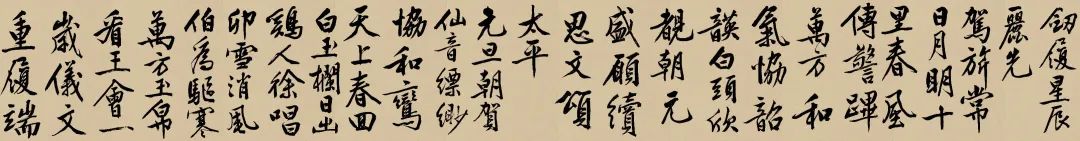 劒履星辰
麗先
駕旂常
日月明十
里春風
傳警蹕
萬方和
氣協韶
韺白頭欣
覩朝元
盛願續
思文頌
太平
元旦朝賀
仙音縹緲
協和鸞
天上春回
白玉欄日出
鷄人徐唱
卯雪消風
伯為驅寒
萬方玉帛
看王會一
歲儀文
重履端